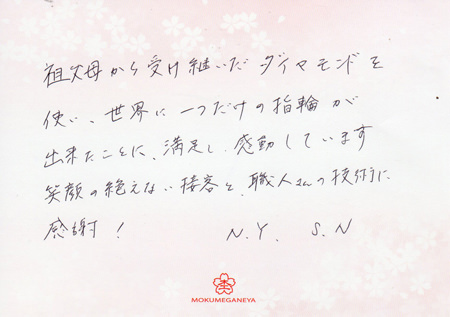 祖父母から受け継いだダイヤモンドを
使い、世界に一つだけの指輪が
出来たことに、満足し、感動しています
笑顔の絶えない接客と、職人さんの技術に
感謝！ N.Y. S.N
MOKUMEGANEYA